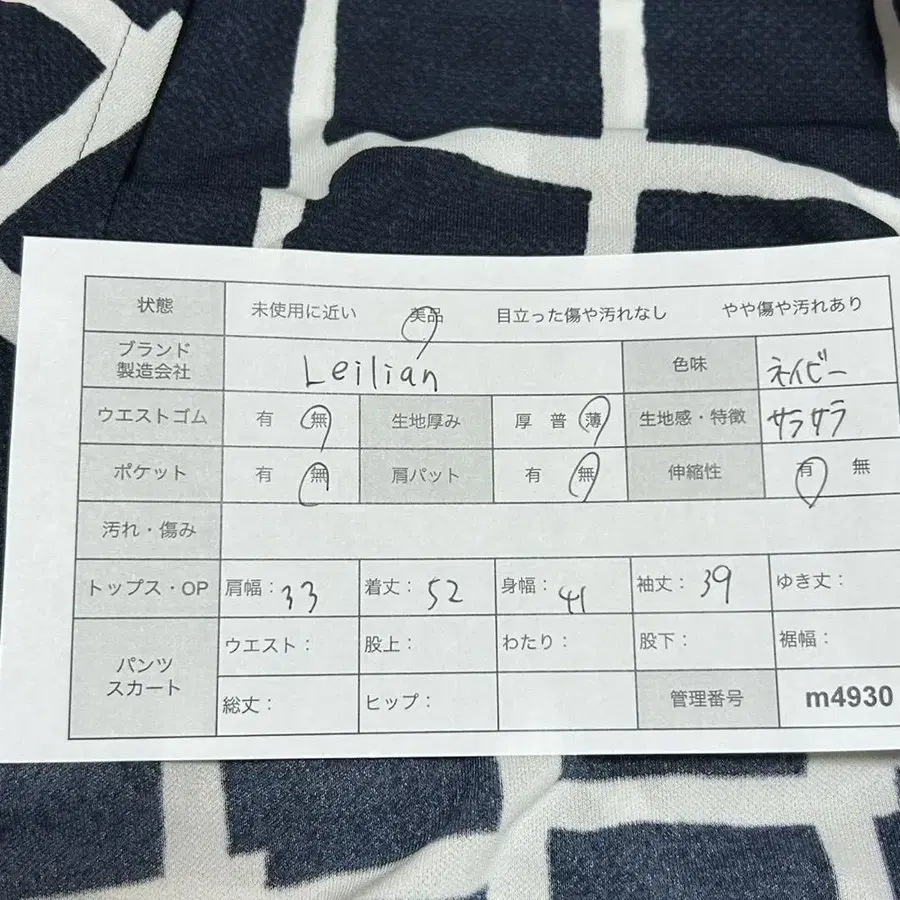 状態 未使用に近い 美品 目立った傷や汚れなし やや傷や汚れあり
ブランド
製造会社 Leilian 色味 ネイビー
ウエストゴム 有 無 生地厚み 厚 普 薄 生地感・特徴 サラサラ
ポケット 有 無 肩パット 有 無 伸縮性 有 無
汚れ・傷み
トップス・OP 肩幅：33 着丈：52 身幅：41 袖丈：39 ゆき丈：
パンツ
スカート ウエスト： 股上： わたり： 股下： 裾幅：
総丈： ヒップ： 管理番号 m4930